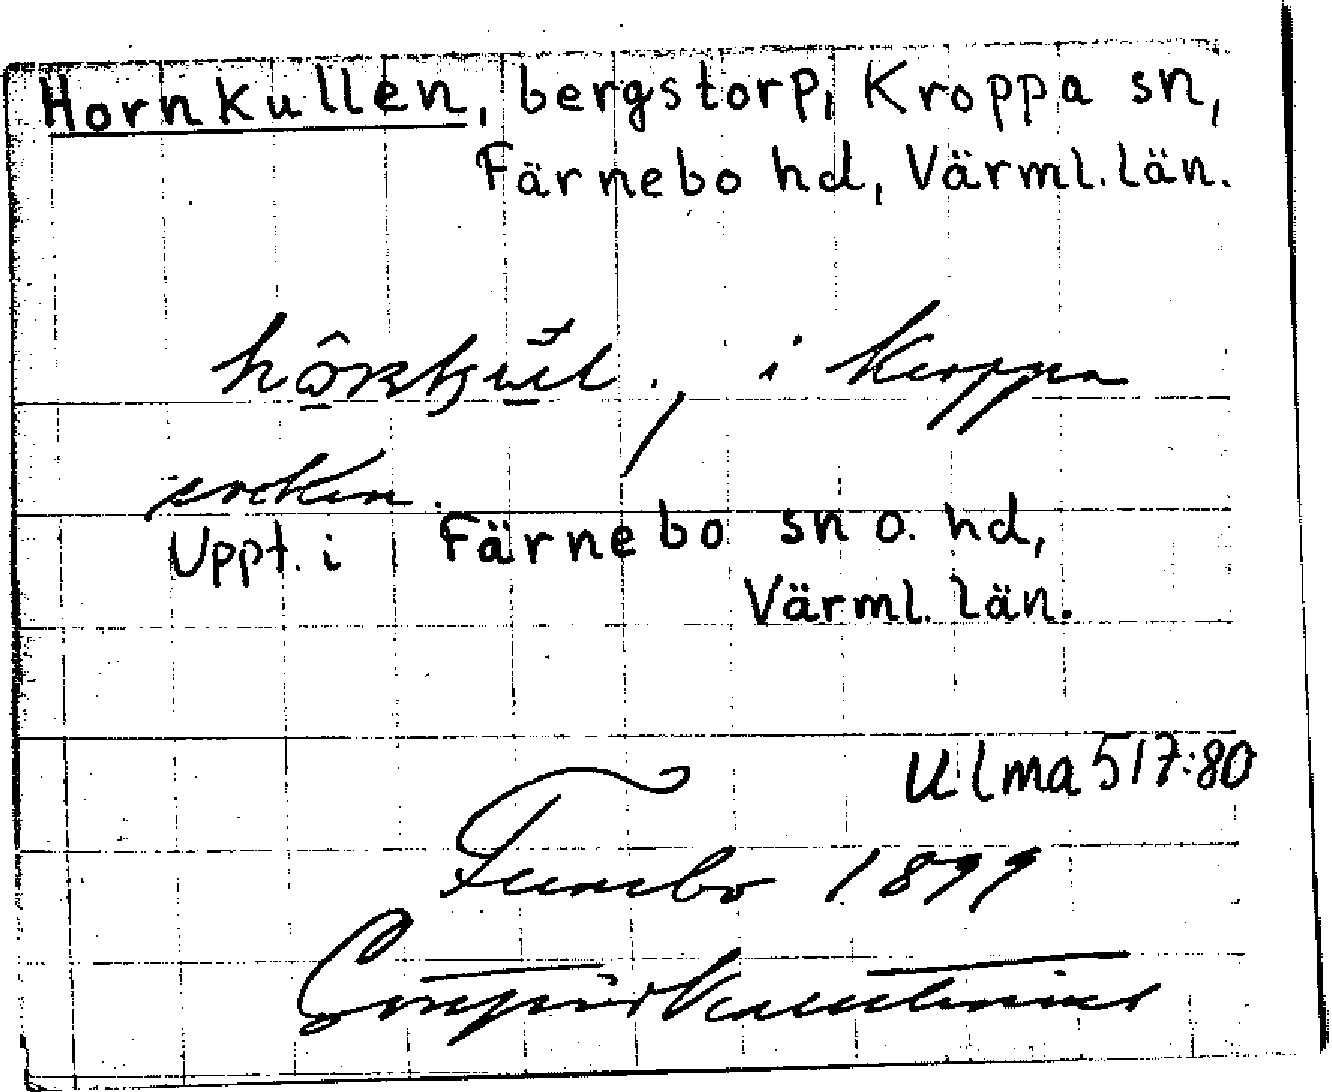 Hornkullen, bergstorp, Kroppa sn,
Färnebo hd, Värml. län.
i Kroppa
socken.
Uppt. i Färnebo sn o. hd,
Värml. län.
Ulma 517:80
Fernebo 1899